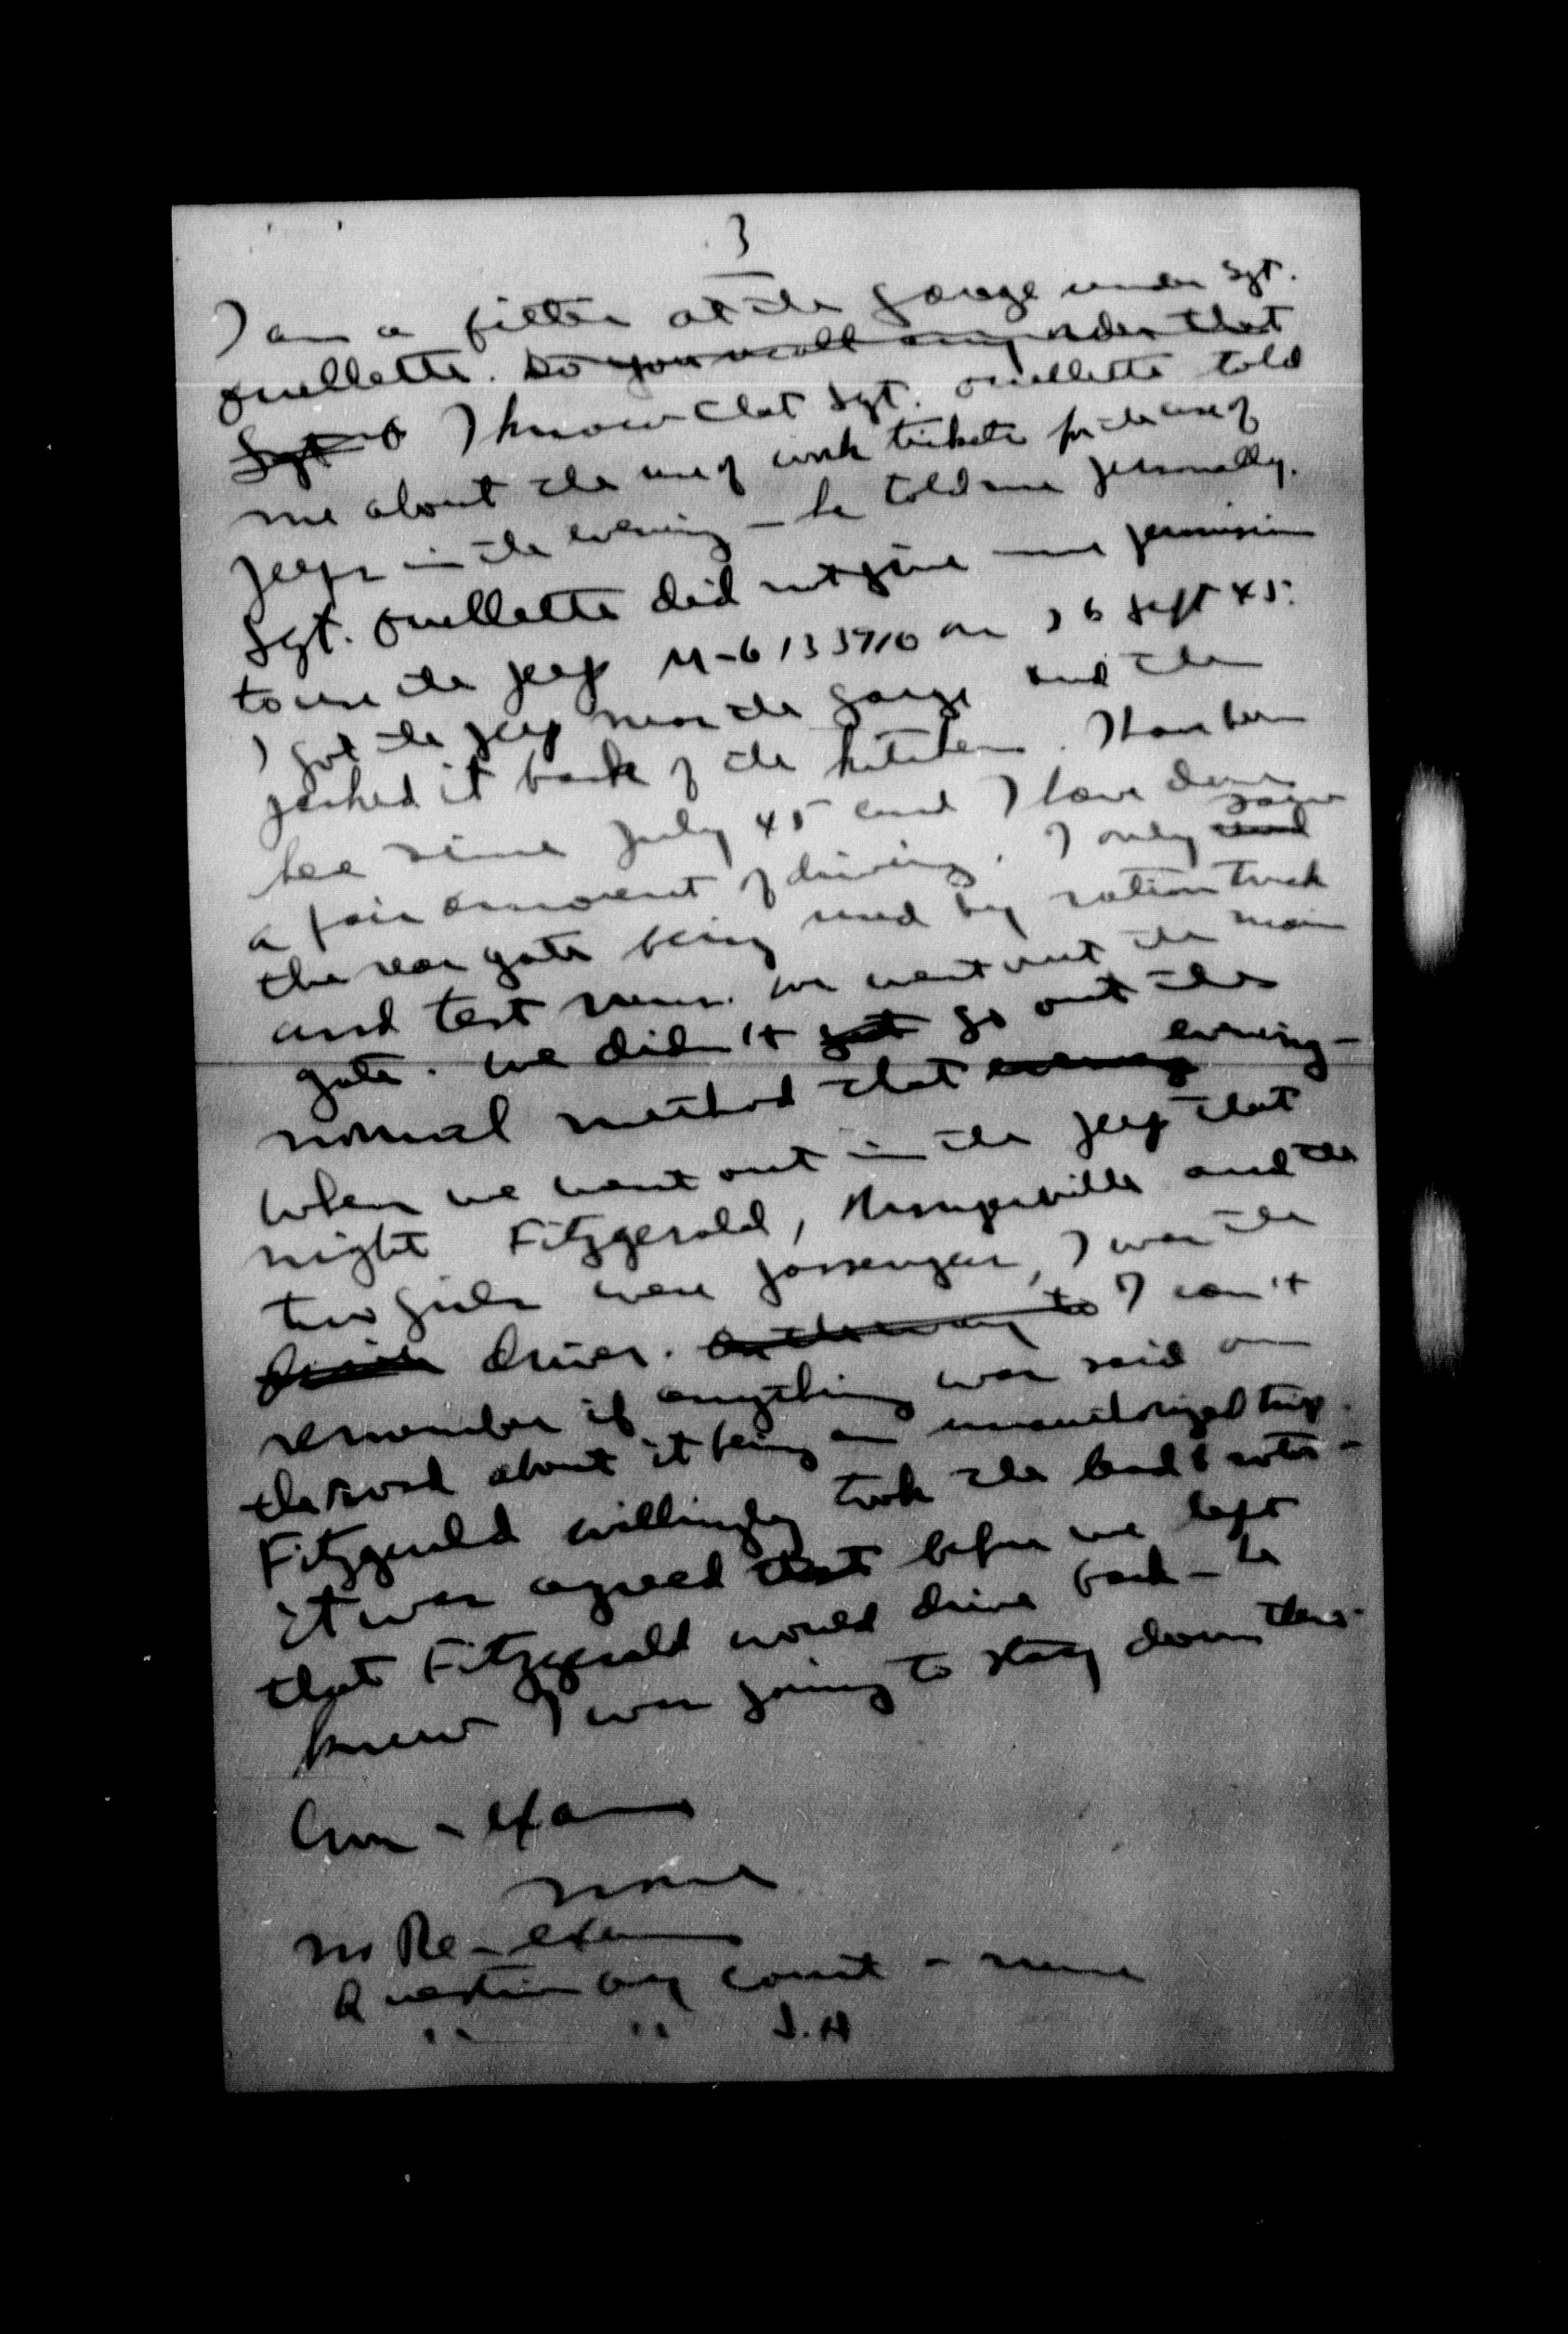 3
I am a fitter at the garage under Sgt.
Ouellette. Do you recall any order that
Sgt O I know that Sgt. Ouellette told
me about the use of work tickets for the use of
jeeps in the evening — he told me personally.
Sgt. Ouellette did not give me permission
to use the jeep M-6133910 on 26 Sept 45.
I got the jeep near the garage and then
parked it back of the kitchen. I have been
here since July 45 and I have done
a fair amount of driving. I only
the rear gate being used by ration truck
and test runs. We went out the main
gate. We didn't get go out the
normal method that evening evening —
When we went out in the jeep that
night Fitzgerald, and the
two girls were passengers, I was the
driver. On the way to I can't
remember if anything was said on
the road about it being an unauthorized trip.
Fitzgerald willingly took the
it was agreed that before we left
that Fitzgerald would drive back — he
knew I was going to stay down there.
Cross-exam
None
No Re-exam
Question by court - none
" " J.A